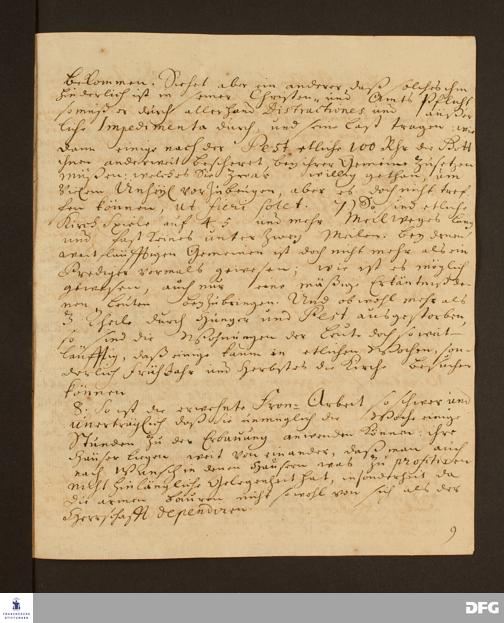 bekommen. Siehet aber ein anderer, daß solches ihm
hinderlich ist in seiner Christen- und Amts Pflicht
so muß er durch allerhand Distractiones und äußer
liche Impedimenta durch und seine Last tragen, wie
dann einige nach der Pest etliche 100 Rthr die Gott
ihnen anderweit bescheret bey ihrer Gemeine zusetzen
müßen; welches Sie zwar willig gethan, um
vielem Unheyl vorzubeugen, aber es doch nicht tref
fen können, ut fieri solet. 7) So sind etliche
Kirch Spiele auf 4. 5 und mehr Meilweges lang
und fast keines unter zwey Meilen. bey denen
weitläufftigen Gemeinen ist doch nicht mehr als ein
Prediger vormals gewesen; wie ist es möglich
gewesen, auch nur eine mäßige Erkäntniß de
nen Leuten beyzubringen. Und obwohl mehr als
3 Theile durch Hunger und Pest ausgestorben,
so sind die Wohnungen der Leute doch so weit-
läufftig, daß einige kaum in etlichen Wochen, son-
derlich Frühjahr und Herbstes die Kirche besuchen
können
8. So ist die erwehnte Fron-Arbeit so schwer und
unerträglich daß sie unmöglich die Woche einige
Stunden zu der Erbauung anwenden können; ihre
Häuser liegen weit von einander, daß man auch
nach Wunsch in denen Häusern was zu profitiren
nicht hinlängliche Gelegenheit hat, insonderheit da
die armen Bauren nicht sowohl von sich als der
Herrschafft dependiren
9
FRANCKESCHE STIFTUNGEN
DFG